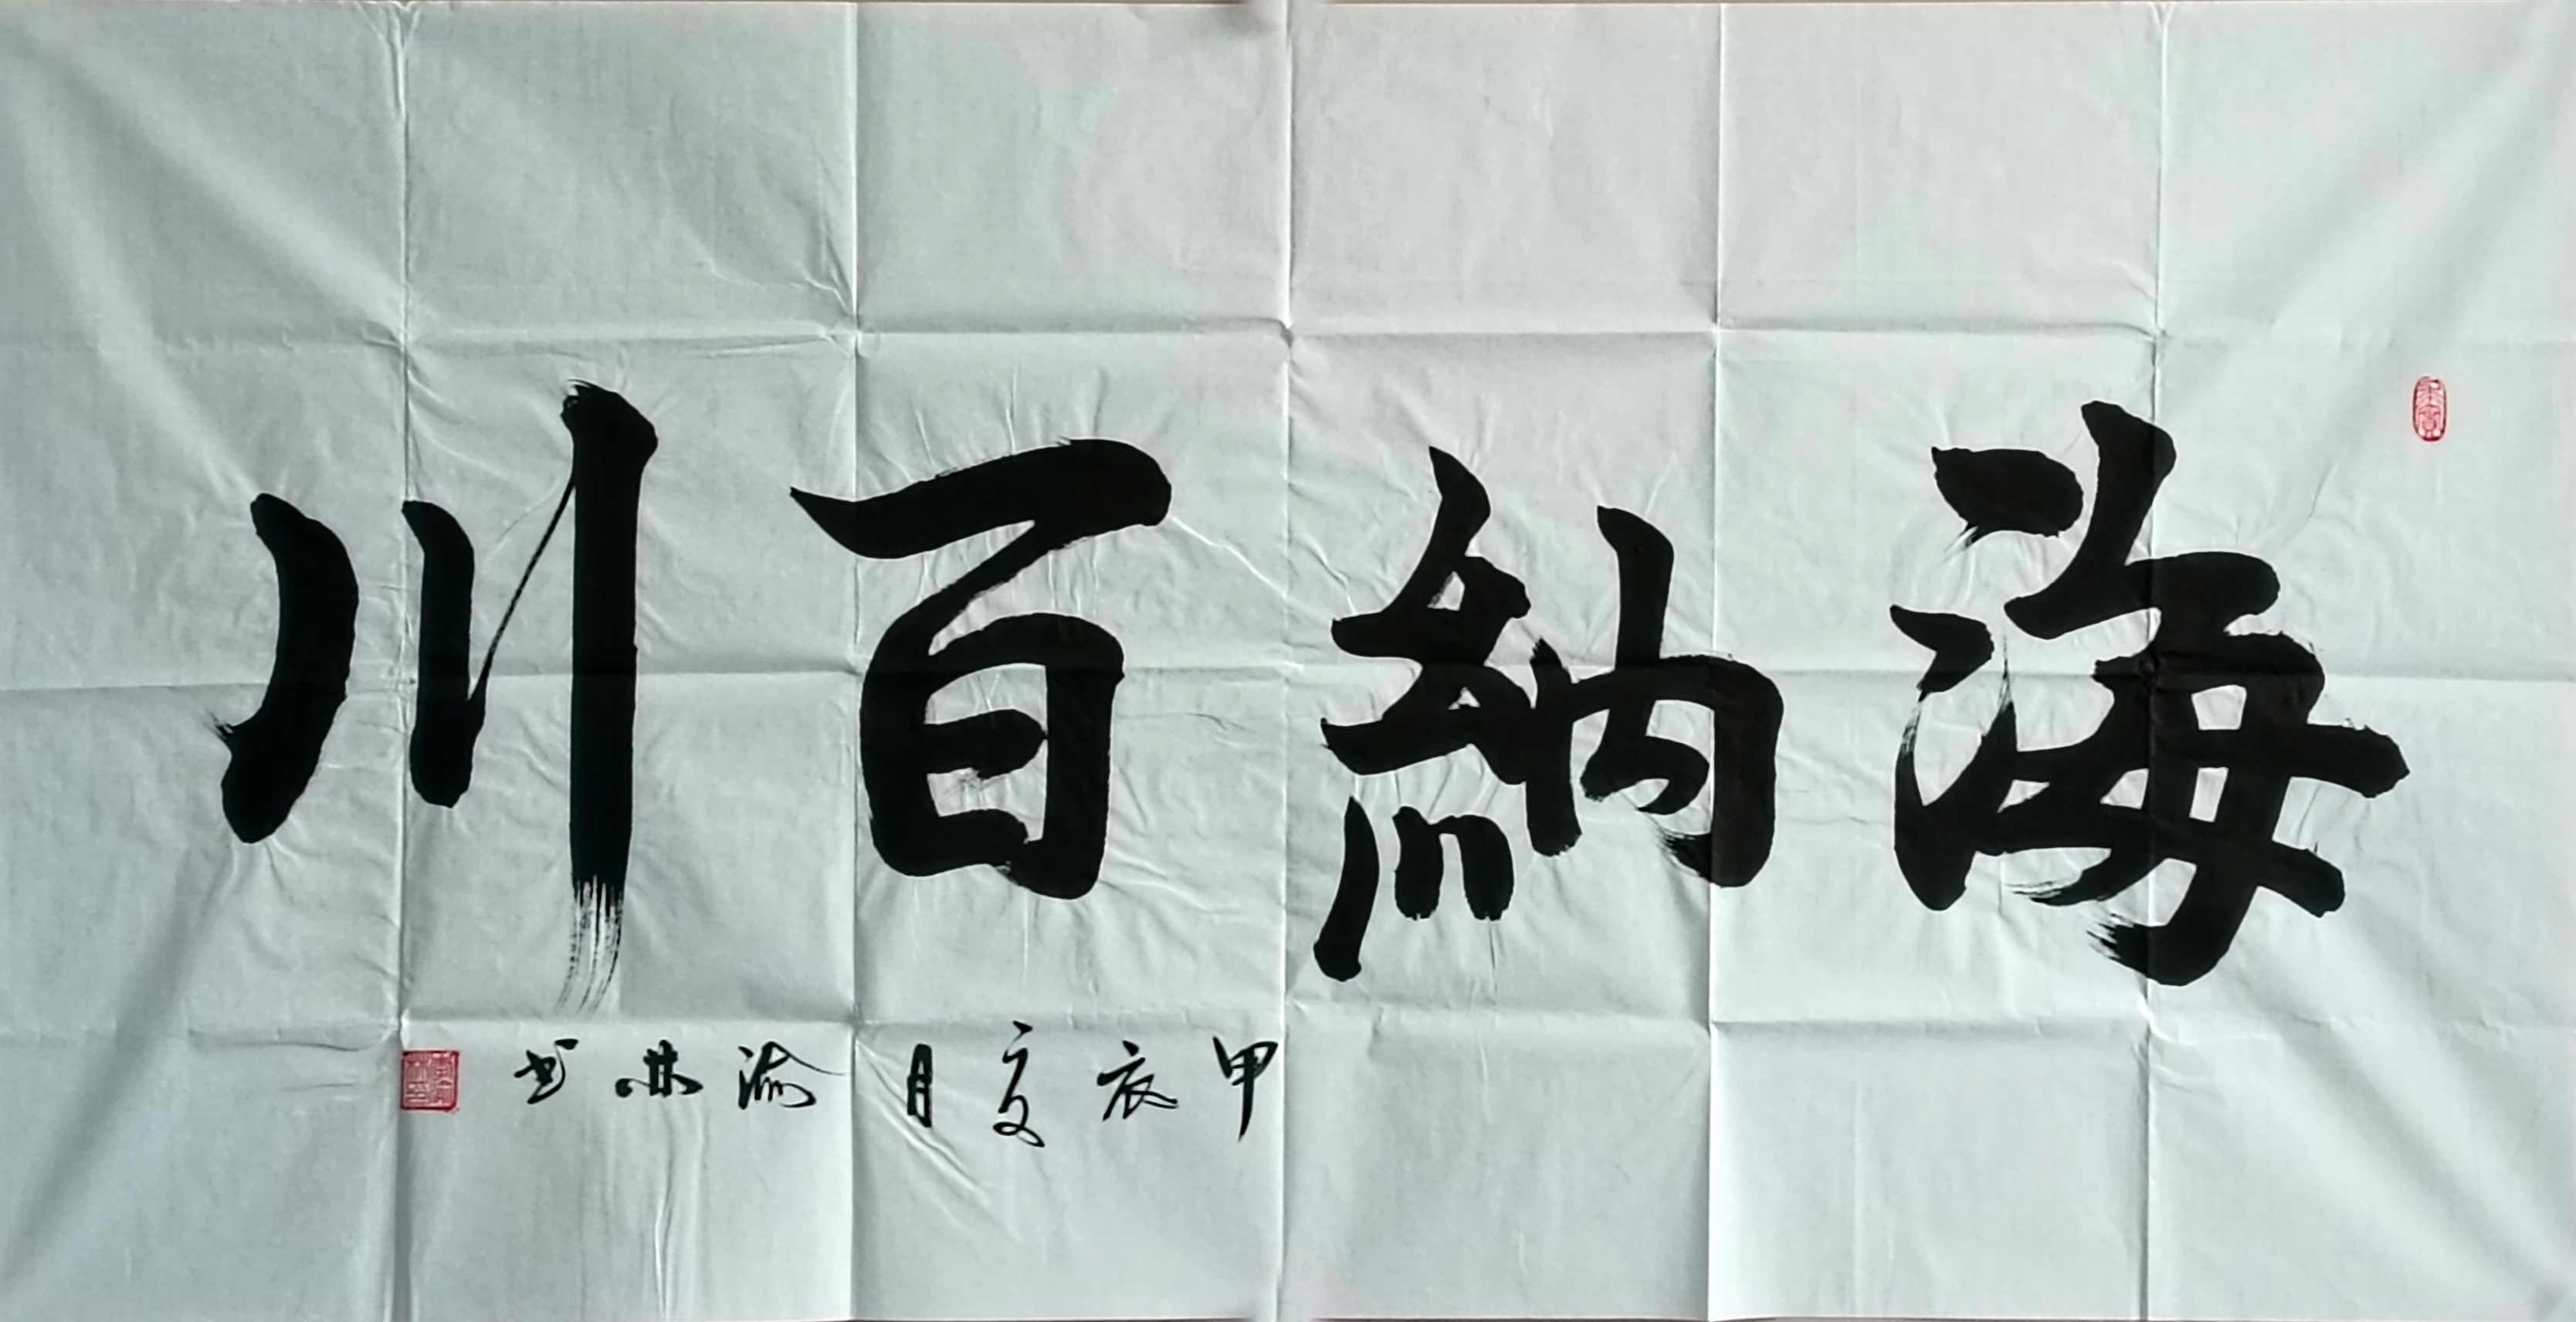 海納百川
甲辰夏月渝林书